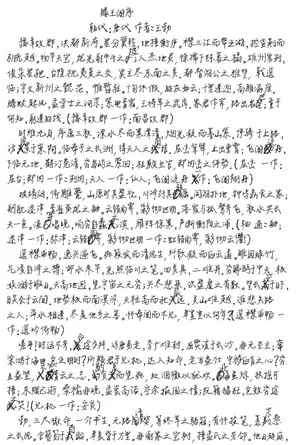 滕王阁序
朝代：唐代 作者：王勃
豫章故郡，洪都新府。星分翼轸，地接衡庐。襟三江而带五湖，控蛮荆而
引瓯越。物华天宝，龙光射牛斗之墟；人杰地灵，徐孺下陈蕃之榻。雄州雾列，
俊采星驰。台隍枕夷夏之交，宾主尽东南之美。都督阎公之雅望，棨戟遥
临；宇文新州之懿范，襜帷暂驻。十旬休假，胜友如云；千里逢迎，高朋满座。
腾蛟起凤，孟学士之词宗；紫电青霜，王将军之武库。家君作宰，路出名区；童子
何知，躬逢胜饯。(豫章故郡 一作：南昌故郡)
时维九月，序属三秋。潦水尽而寒潭清，烟光凝而暮山紫。俨骖騑于上路，
访风景于崇阿。临帝子之长洲，得天人之旧馆。层峦耸翠，上出重霄；飞阁
下临无地。鹤汀凫渚，穷岛屿之萦回；桂殿兰宫，即冈峦之体势。(层峦 一作：
层台；即冈 一作：列冈；天人 一作：仙人；飞阁流丹 一作：飞阁翔丹)
披绣闼，俯雕甍，山原旷其盈视，川泽纡其骇瞩。闾阎扑地，钟鸣鼎食之家；
舸舰弥津，青雀黄龙之舳。云销雨霁，彩彻区明。落霞与孤鹜齐飞，秋水共长
天一色。渔舟唱晚，响穷彭蠡之滨；雁阵惊寒，声断衡阳之浦。(轴 通：舳；
迷津 一作：弥津；云销雨霁，彩彻区明 一作：虹销雨霁，彩彻云衢)
遥襟甫畅，逸兴遄飞。爽籁发而清风生，纤歌凝而白云遏。睢园绿竹，
气凌彭泽之樽；邺水朱华，光照临川之笔。四美具，二难并。穷睇眄于中天，极
娱游于暇日。天高地迥，觉宇宙之无穷；兴尽悲来，识盈虚之有数。望长安于日
下，目吴会于云间。地势极而南溟深，天柱高而北辰远。关山难越，谁悲失路
之人；萍水相逢，尽是他乡之客。怀帝阍而不见，奉宣室以何年？(遥襟甫畅 一
作：遥吟俯畅)
嗟乎！时运不齐，命途多舛。冯唐易老，李广难封。屈贾谊于长沙，非无圣主；窜
梁鸿于海曲，岂乏明时？所赖君子见机，达人知命。老当益壮，宁移白首之心？穷且
益坚，不坠青云之志。酌贪泉而觉爽，处涸辙以犹欢。北海虽赊，扶摇可
接；东隅已逝，桑榆非晚。孟尝高洁，空余报国之情；阮籍猖狂，岂效穷途之
哭！(见机 一作：安贫)
勃，三尺微命，一介书生。无路请缨，等终军之弱冠；有怀投笔，慕宗悫
之长风。舍簪笏于百龄，奉晨昏于万里。非谢家之宝树，接孟氏之芳邻。